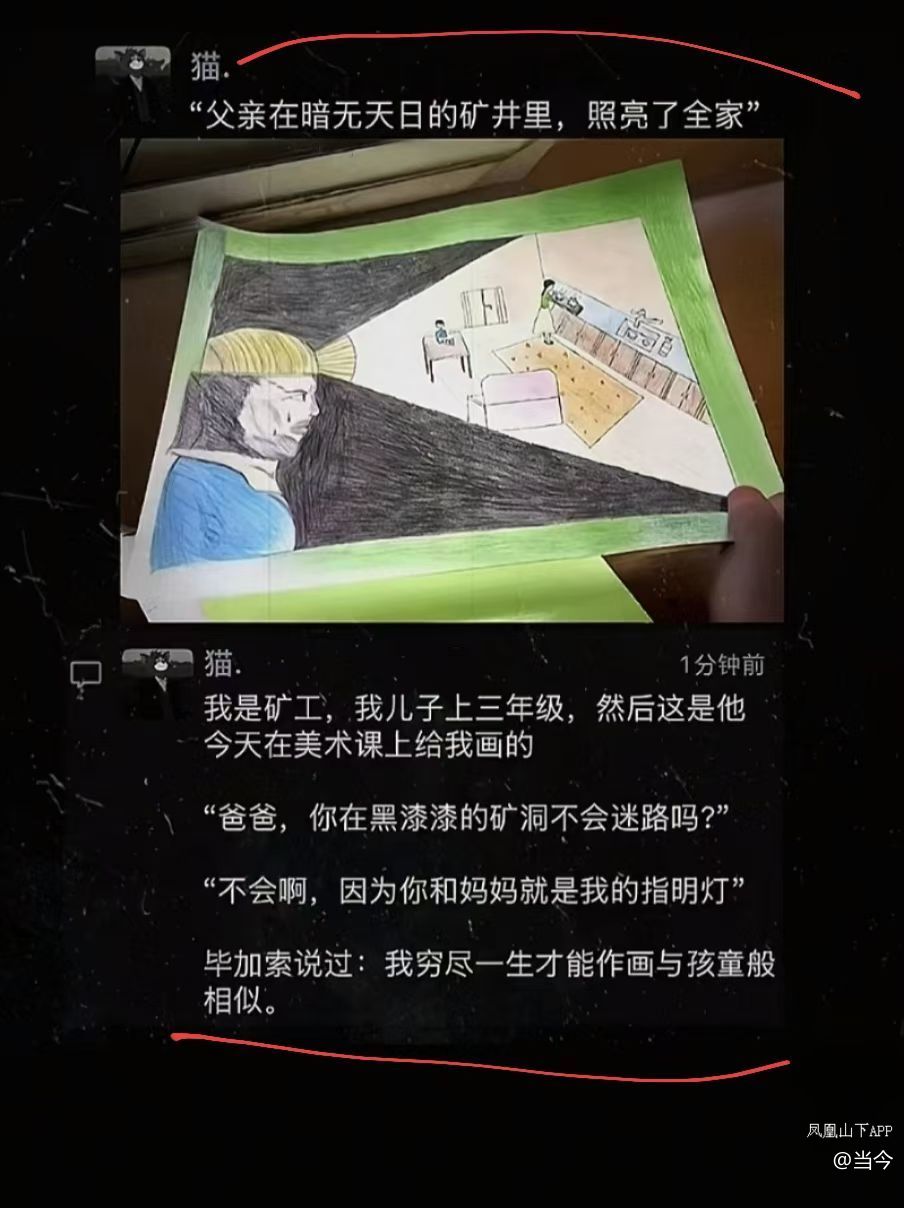 猫.
“父亲在暗无天日的矿井里，照亮了全家”
猫.
1分钟前
我是矿工，我儿子上三年级，然后这是他
今天在美术课上给我画的
“爸爸，你在黑漆漆的矿洞不会迷路吗？”
“不会啊，因为你和妈妈就是我的指明灯”
毕加索说过：我穷尽一生才能作画与孩童般
相似。
凤凰山下APP
@当今